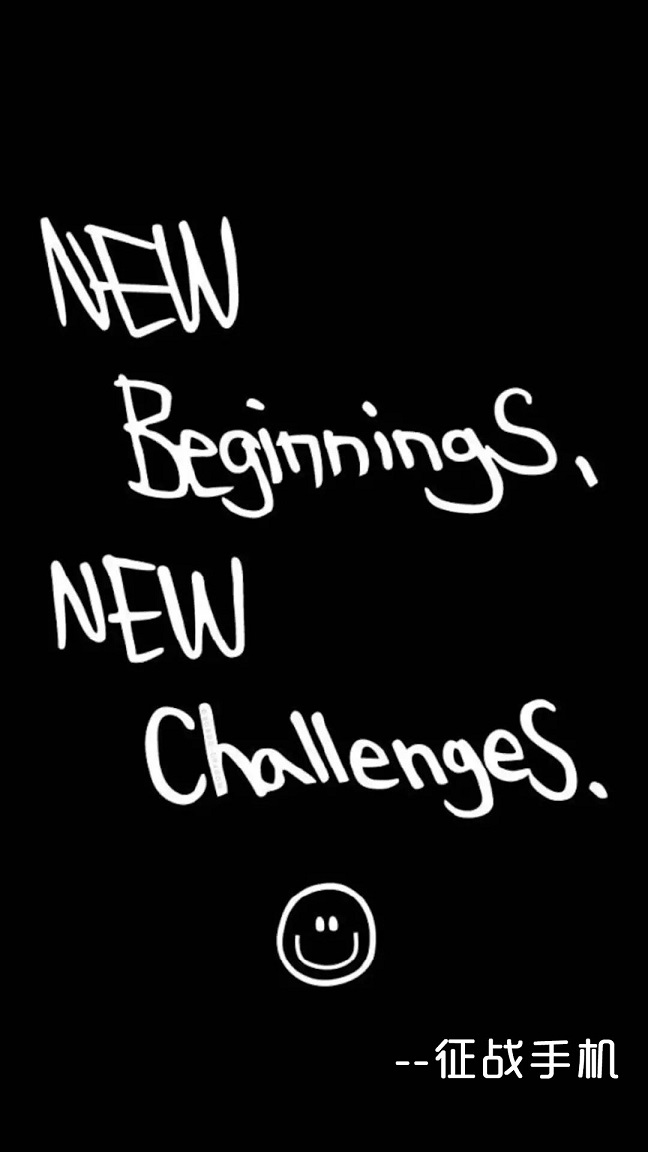 NEW
BeginningS,
NEW
ChallengeS.
--征战手机